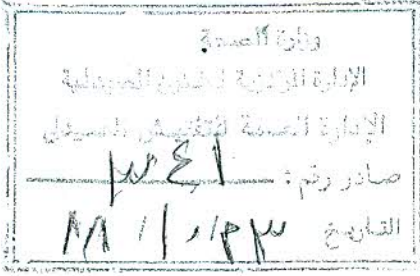 وزارة الصحة
الإدارة المركزية للشئون الصيدلية
الإدارة العامة للتفتيش الصيدلي
صادر رقم: ٣٤١
التاريخ